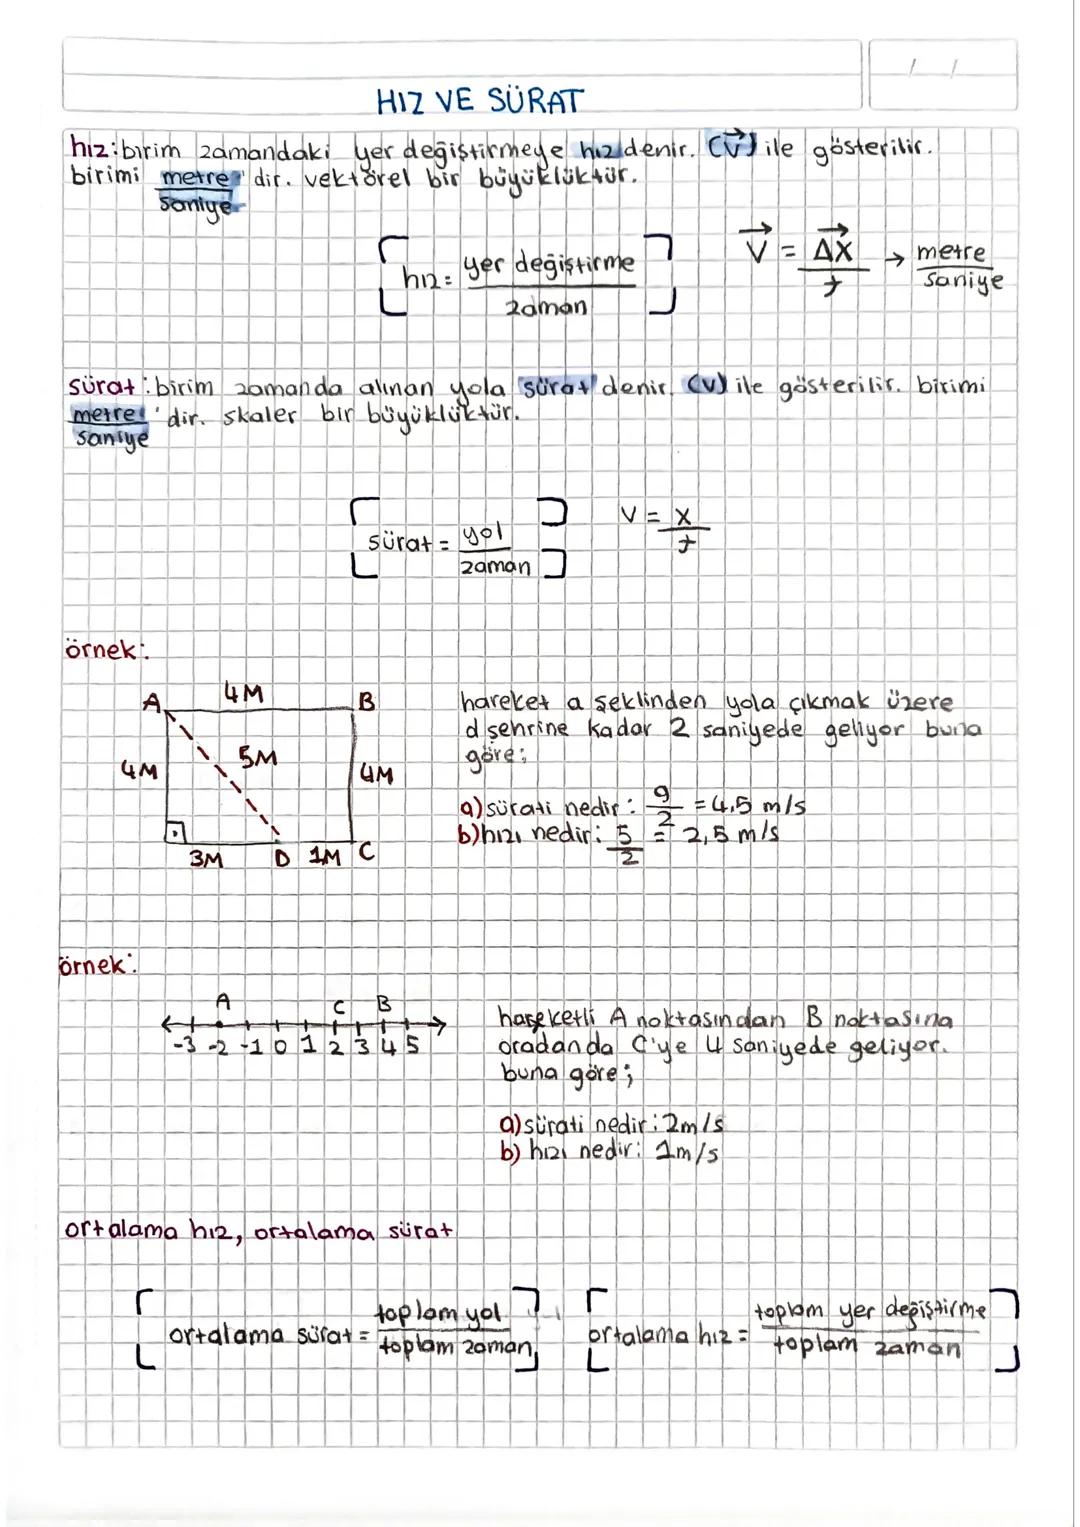 / /
HIZ VE SÜRAT
hız: birim zamandaki yer değiştirmeye hız denir. (V⃗) ile gösterilir.
birimi metre/saniye 'dir. vektörel bir büyüklüktür.
hız = yer değiştirme / zaman
V⃗ = ΔX⃗ / t → metre / saniye
sürat: birim zamanda alınan yola "sürat" denir. (v) ile gösterilir. birimi
metre/saniye 'dir. skaler bir büyüklüktür.
sürat = yol / zaman
V = X / t
örnek:
A 4M B
4M 5M 4M
3M D 1M C
hareket a şeklinden yola çıkmak üzere
d şehrine kadar 2 saniyede geliyor buna
göre;
a) sürati nedir: 9/2 = 4,5 m/s
b) hızı nedir: 5/2 = 2,5 m/s
örnek:
A C B
-3 -2 -1 0 1 2 3 4 5
hareketli A noktasından B noktasına
oradanda C'ye 4 saniyede geliyor.
buna göre;
a) sürati nedir: 2m/s
b) hızı nedir: 1m/s
ortalama hız, ortalama sürat
ortalama sürat = toplam yol / toplam zaman
ortalama hız = toplam yer değiştirme / toplam zaman